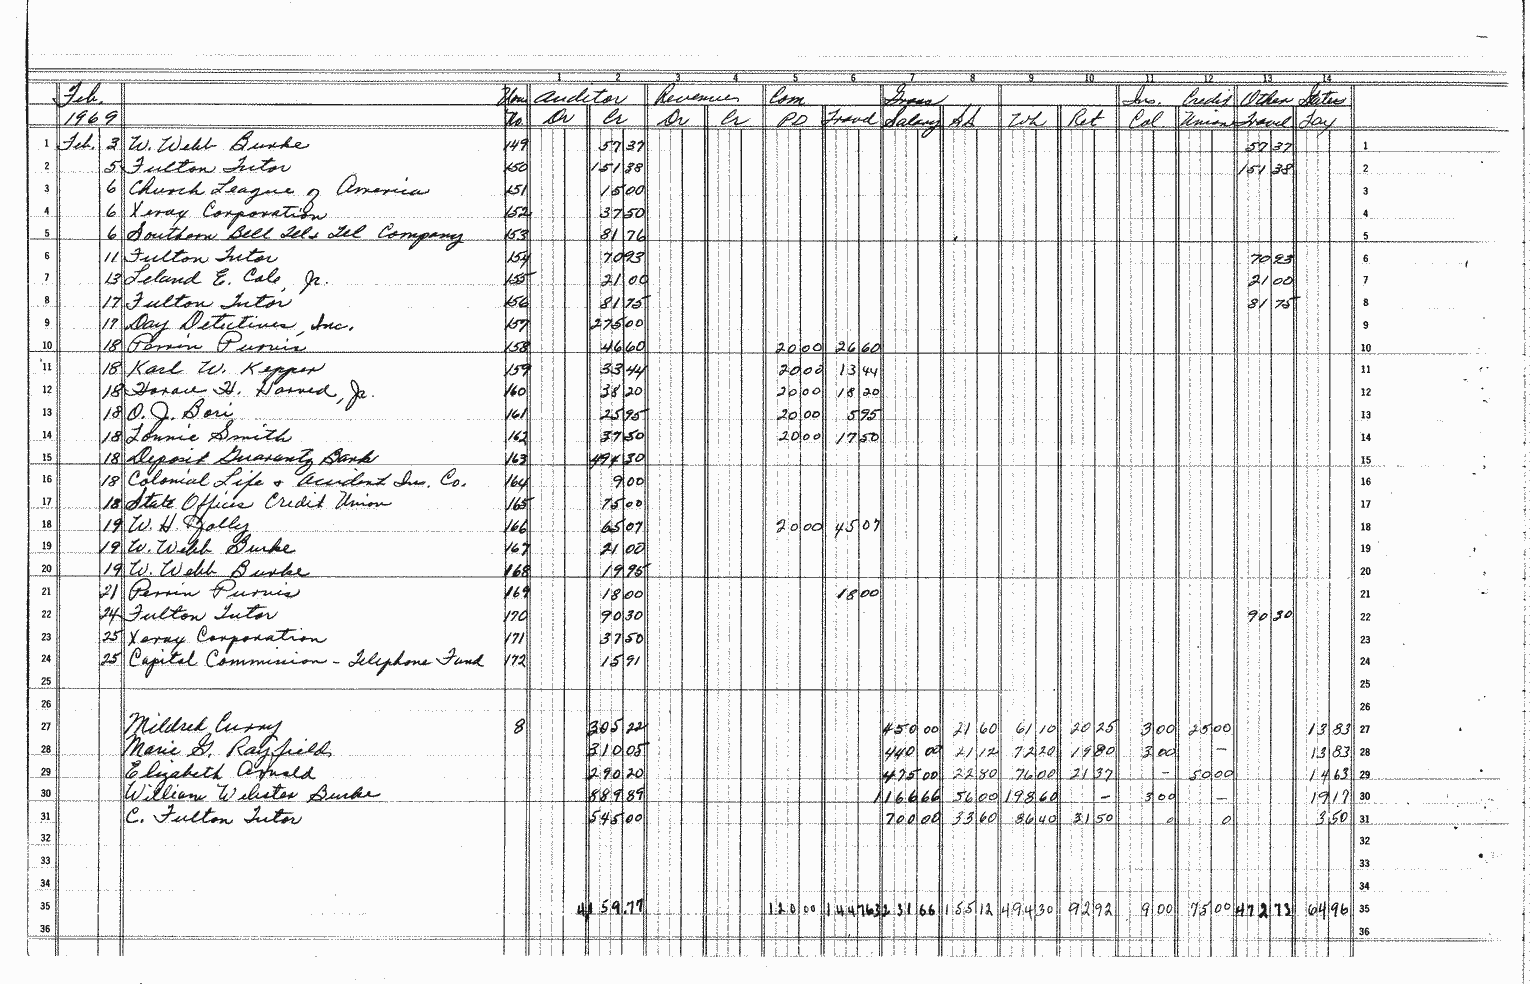 1 2 3 4 5 6 7 8 9 10 11 12 13 14
Feb. Auditor Revenue Com Gross Ins. Credit Other State
1969 No Dr Cr Dr Cr PD Travel Salary SS Wh Ret Col Union Travel Tax
1 Feb. 3 W. Webb Burke 149 57 37 57 37 1
2 5 Fulton Tutor 150 151 38 151 38 2
3 6 Church League of America 151 15 00 3
4 6 Xerox Corporation 152 37 50 4
5 6 Southern Bell Tel & Tel Company 153 81 76 5
6 11 Fulton Tutor 154 70 93 70 93 6
7 13 Leland E. Cole, Jr. 155 21 00 21 00 7
8 17 Fulton Tutor 156 81 75 81 75 8
9 17 Day Detectives, Inc. 157 275 00 9
10 18 Perrin Purvis 158 46 60 20 00 26 60 10
11 18 Karl W. Kepper 159 33 44 20 00 13 44 11
12 18 Horace H. Harned, Jr. 160 38 20 20 00 18 20 12
13 18 O. J. Bori 161 25 95 20 00 5 95 13
14 18 Lonnie Smith 162 37 50 20 00 17 50 14
15 18 Deposit Guaranty Bank 163 494 30 15
16 18 Colonial Life & Accident Ins. Co. 164 9 00 16
17 18 State Offices Credit Union 165 75 00 17
18 19 W. H. Jolly 166 65 07 20 00 45 07 18
19 19 W. Webb Burke 167 21 00 19
20 19 W. Webb Burke 168 19 95 20
21 21 Perrin Purvis 169 18 00 18 00 21
22 24 Fulton Tutor 170 90 30 90 30 22
23 25 Xerox Corporation 171 37 50 23
24 25 Capital Commission - Telephone Fund 172 15 91 24
25 25
26 26
27 Mildred Curry 8 305 22 450 00 21 60 61 10 20 25 3 00 25 00 13 83 27
28 Marie G. Rayfield 310 05 440 00 21 12 72 20 19 80 3 00 - 13 83 28
29 Elizabeth Arnold 290 20 475 00 22 80 76 00 21 37 - 50 00 14 63 29
30 William Webster Burke 889 89 1166 66 56 00 198 60 - 3 00 - 19 17 30
31 C. Fulton Tutor 545 00 700 00 33 60 86 40 31 50 0 0 3 50 31
32 32
33 33
34 34
35 4159.77 120 00 144 76 3231 66 155 12 494 30 92 92 9 00 75 00 472 73 64 96 35
36 36